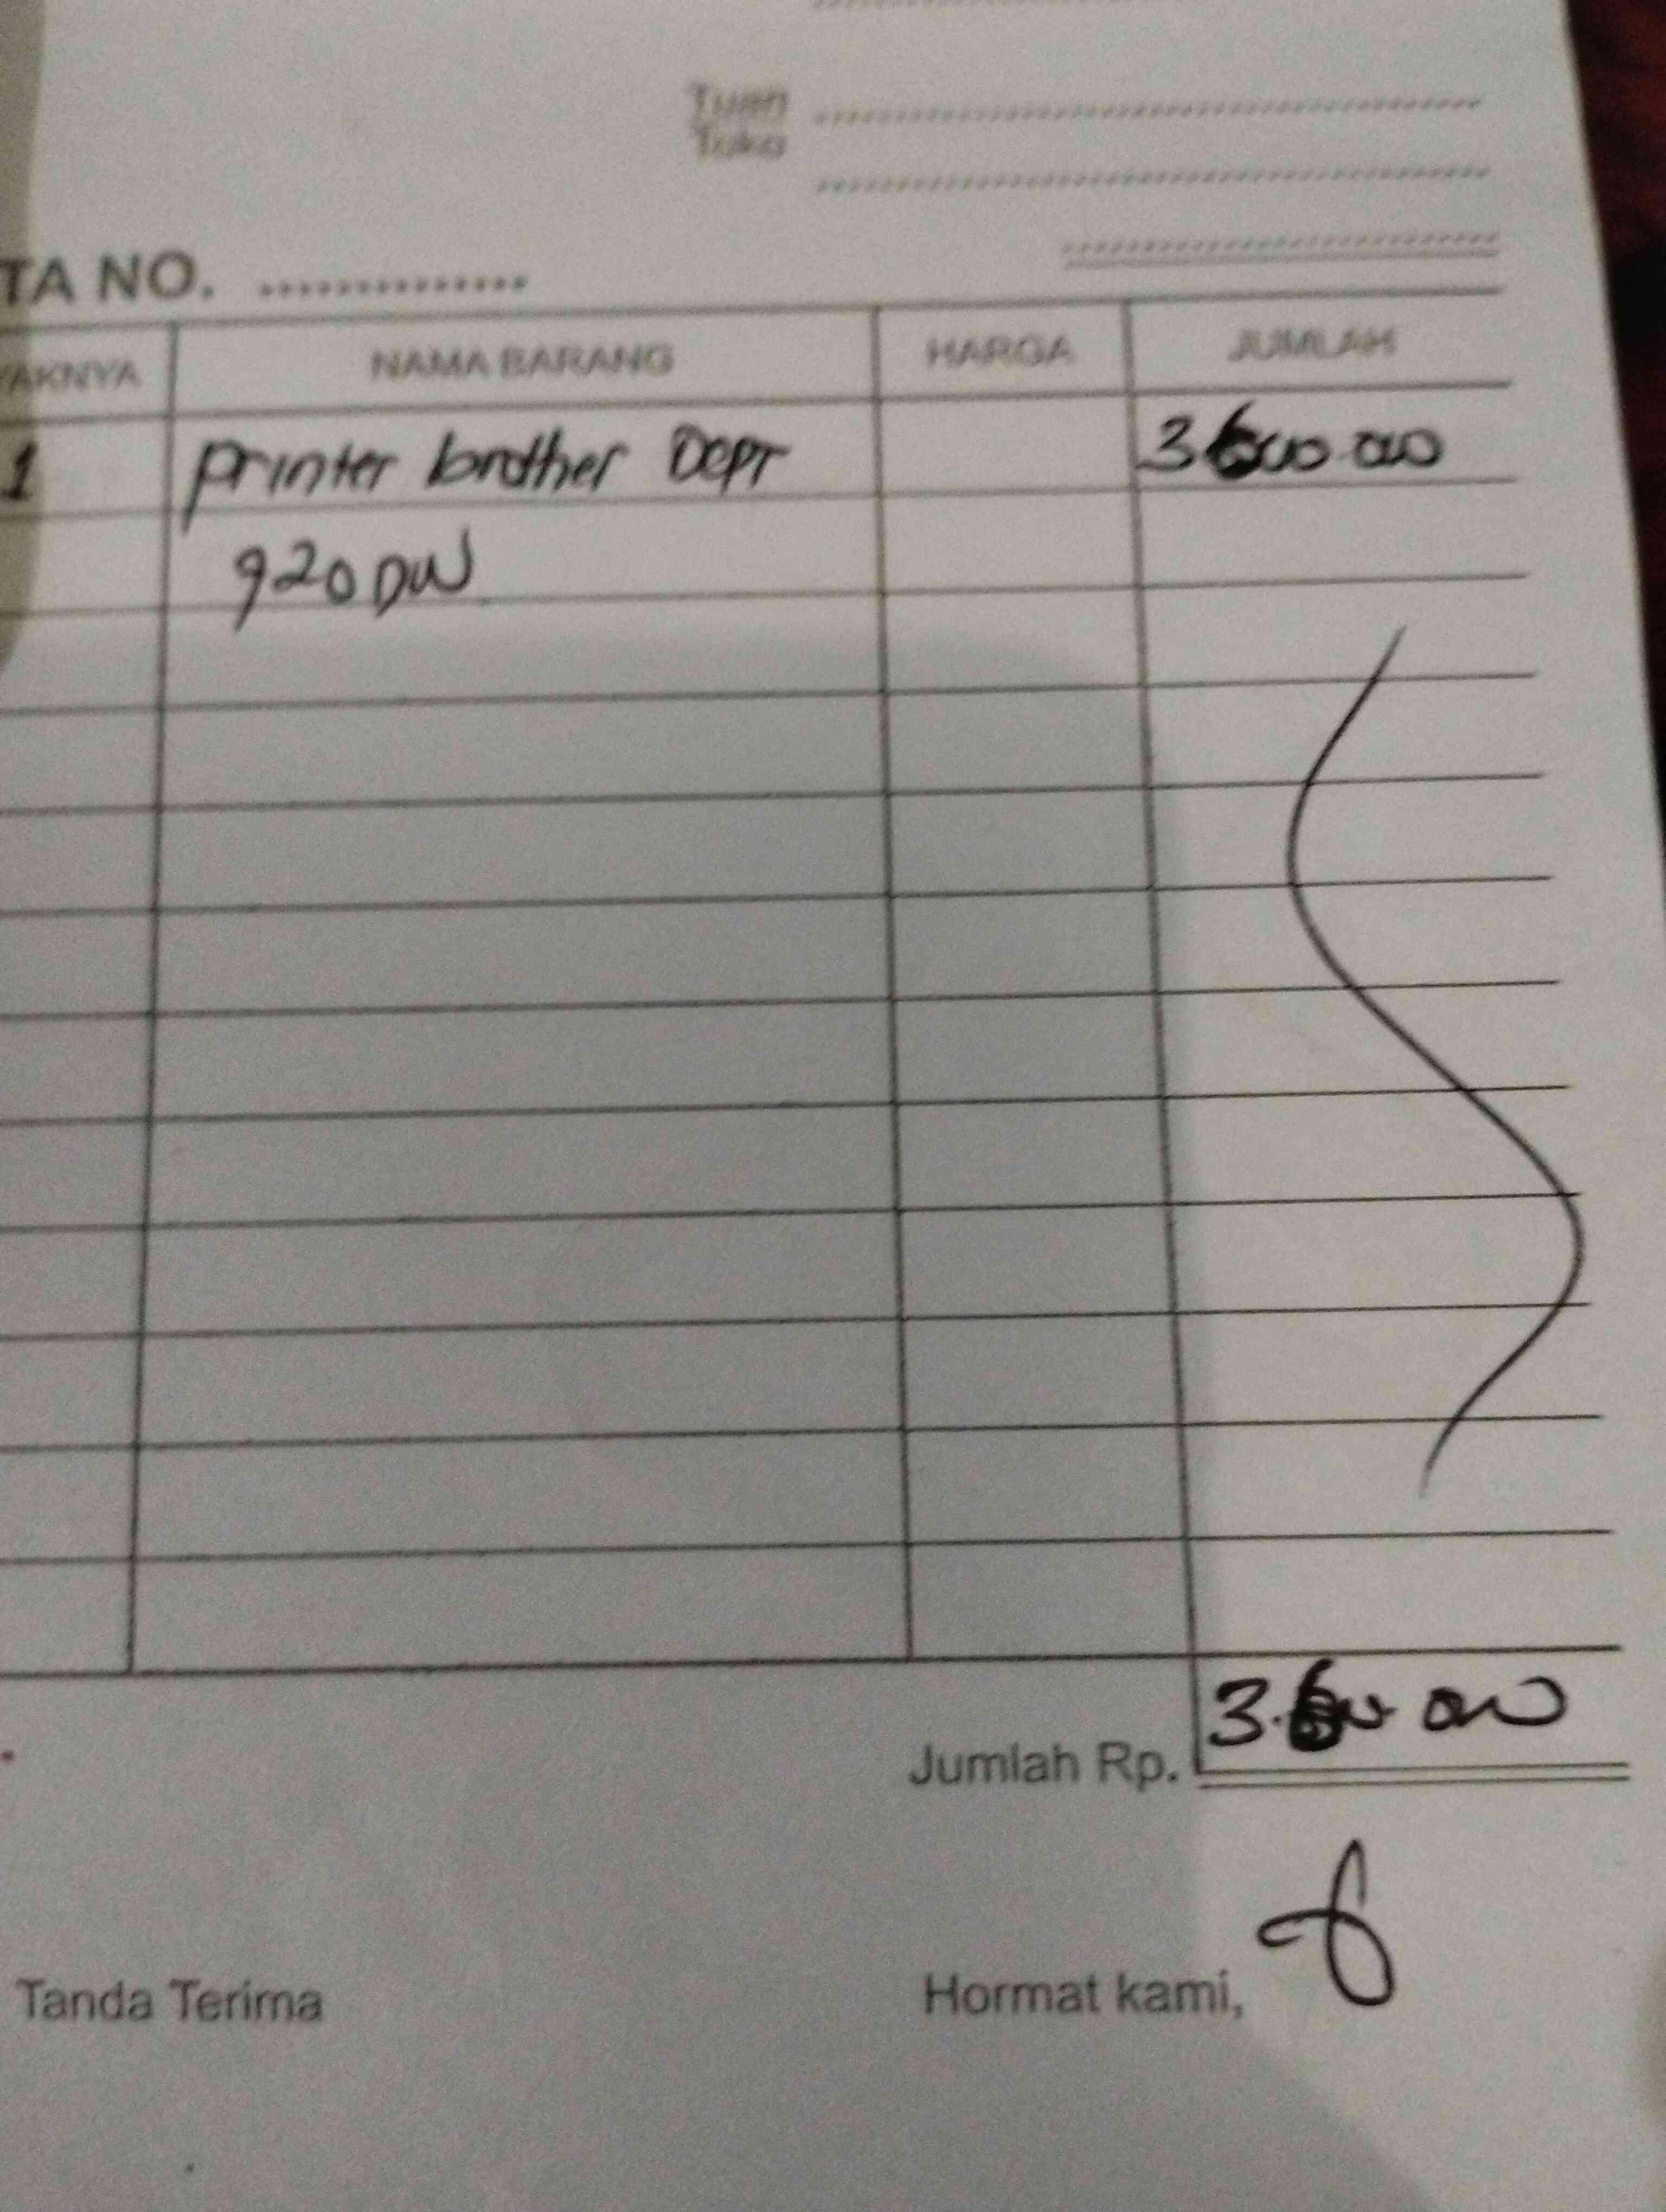 Tuan
Toko
TA NO. ...............
YAKNYA NAMA BARANG HARGA JUMLAH
1 printer brother DCPT 3600.000
920 DW
Jumlah Rp. 3.600.000
Tanda Terima Hormat kami,